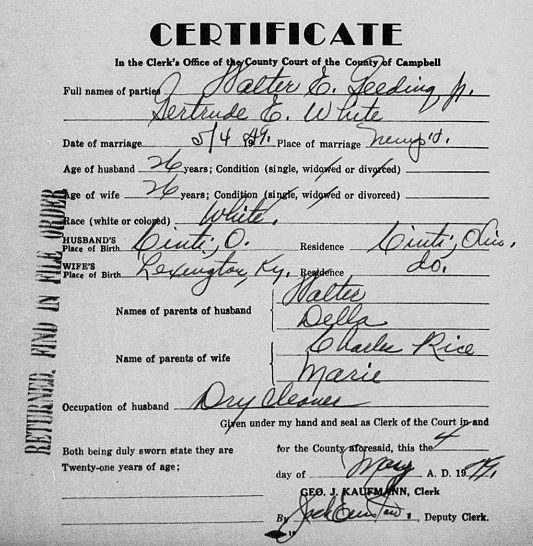 CERTIFICATE
In the Clerk's Office of the County Court of the County of Campbell
Full names of parties Walter E. Leeding Jr.
Gertrude E. White
Date of marriage 5/4 1949. Place of marriage Newp't.
Age of husband 26 years; Condition (single, widowed or divorced)
Age of wife 26 years; Condition (single, widowed or divorced)
Race (white or colored) White.
HUSBAND'S Place of Birth Cinti, O. Residence Cinti, Ohio.
WIFE'S Place of Birth Lexington, Ky. Residence do.
Names of parents of husband Walter
Della
Name of parents of wife Charles Rice
Marie
Occupation of husband Dry Cleaner
Given under my hand and seal as Clerk of the Court in and
Both being duly sworn state they are for the County aforesaid, this the 4
Twenty-one years of age;
day of May A. D. 1949.
GEO. J. KAUFMANN, Clerk
By Jack , Deputy Clerk.
RETURNED, FIND IN FILE ORDER